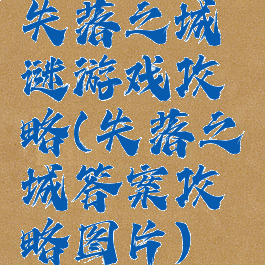 失落之城
谜游戏攻
略(失落之
城答案攻
略图片)